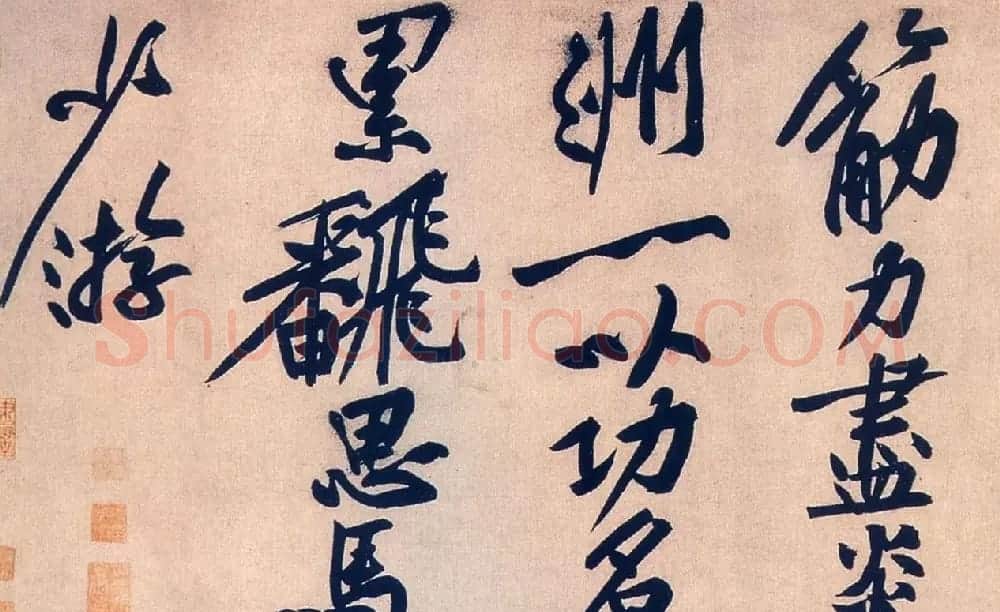 筋力盡炎
洲一以功名
累飜思馬
少游
Shufaziliao.COM